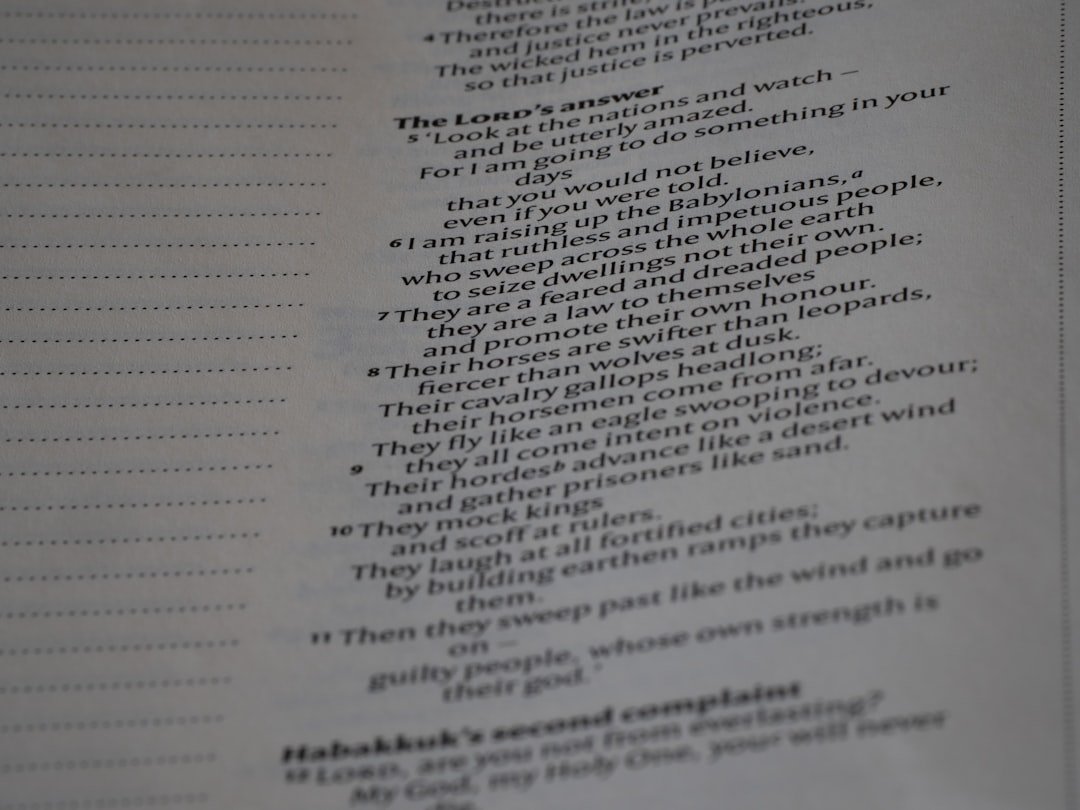 Destruct
there is strife,
4 Therefore the law is p
and justice never prevails.
The wicked hem in the righteous,
so that justice is perverted.
The LORD's answer
5 ‘Look at the nations and watch –
and be utterly amazed.
For I am going to do something in your
days
that you would not believe,
even if you were told.
6 I am raising up the Babylonians,a
that ruthless and impetuous people,
who sweep across the whole earth
to seize dwellings not their own.
7 They are a feared and dreaded people;
they are a law to themselves
and promote their own honour.
8 Their horses are swifter than leopards,
fiercer than wolves at dusk.
Their cavalry gallops headlong;
their horsemen come from afar.
They fly like an eagle swooping to devour;
9 they all come intent on violence.
Their hordesb advance like a desert wind
and gather prisoners like sand.
10 They mock kings
and scoff at rulers.
They laugh at all fortified cities;
by building earthen ramps they capture
them.
11 Then they sweep past like the wind and go
on –
guilty people, whose own strength is
their god.’
Habakkuk's second complaint
12 LORD, are you not from everlasting?
My God, my Holy One, you will never
die.